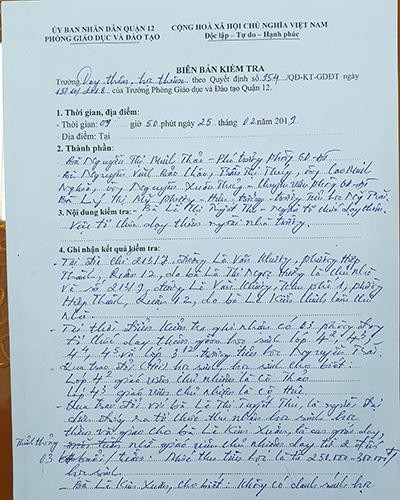 ỦY BAN NHÂN DÂN QUẬN 12
PHÒNG GIÁO DỤC VÀ ĐÀO TẠO
CỘNG HOÀ XÃ HỘI CHỦ NGHĨA VIỆT NAM
Độc lập – Tự do – Hạnh phúc
BIÊN BẢN KIỂM TRA
Trường Dạy thêm, học thêm theo Quyết định số 354/QĐ-KT-GDĐT ngày
của Trưởng Phòng Giáo dục và Đào tạo Quận 12.
1. Thời gian, địa điểm:
- Thời gian: 09 giờ 50 phút ngày 25 tháng 02 năm 2019
- Địa điểm: Tại
2. Thành phần:
- Bà Nguyễn Thị Minh Thảo - Phó trưởng phòng GD-ĐT
- Bà Nguyễn Vinh Bảo Châu, Trần Thị Thúy, ông Cao Minh
Nghĩa, ông Nguyễn Xuân Thu - Chuyên viên phòng GD-ĐT
- Bà Lý Thị Mỹ Phượng - Hiệu trưởng trường Tiểu học Ng Trãi.
- Bà Lê Thị Tuyết Thu - Người tổ chức dạy thêm.
3. Nội dung kiểm tra:
Việc tổ chức dạy thêm ngoài nhà trường.
4. Ghi nhận kết quả kiểm tra:
- Tại địa chỉ 215/7 đường Lê Văn Khương, phường Hiệp
Thành, Quận 12, do bà Lê Thị Ngọc Hường là chủ nhà
và số 215/9, đường Lê Văn Khương, khu phố 1, phường
Hiệp Thành, Quận 12, do bà Lê Kiên Thanh làm chủ
nhà.
- Tại thời điểm kiểm tra ghi nhận có 03 phòng dạy
tổ chức dạy thêm gồm học sinh lớp 4
và lớp trường tiểu học Nguyễn Trãi.
- Qua trao đổi với học sinh, học sinh cho biết:
Lớp 4 giáo viên chủ nhiệm là cô Thảo
Lớp 4 giáo viên chủ nhiệm là cô Huê
- Qua trao đổi với bà Lê Thị Tuyết Thu, là người đại
diện đứng ra tổ chức thu nhận học sinh học
thêm giúp cho bà Lê Kiên Xuân,
nhờ giáo viên chủ nhiệm dạy từ 2 đến
03 buổi/tuần. Mức thu tiền học là từ 250.000 - 300.000
học sinh
- Bà Lê Kiên Xuân, cho biết: Không có danh sách học